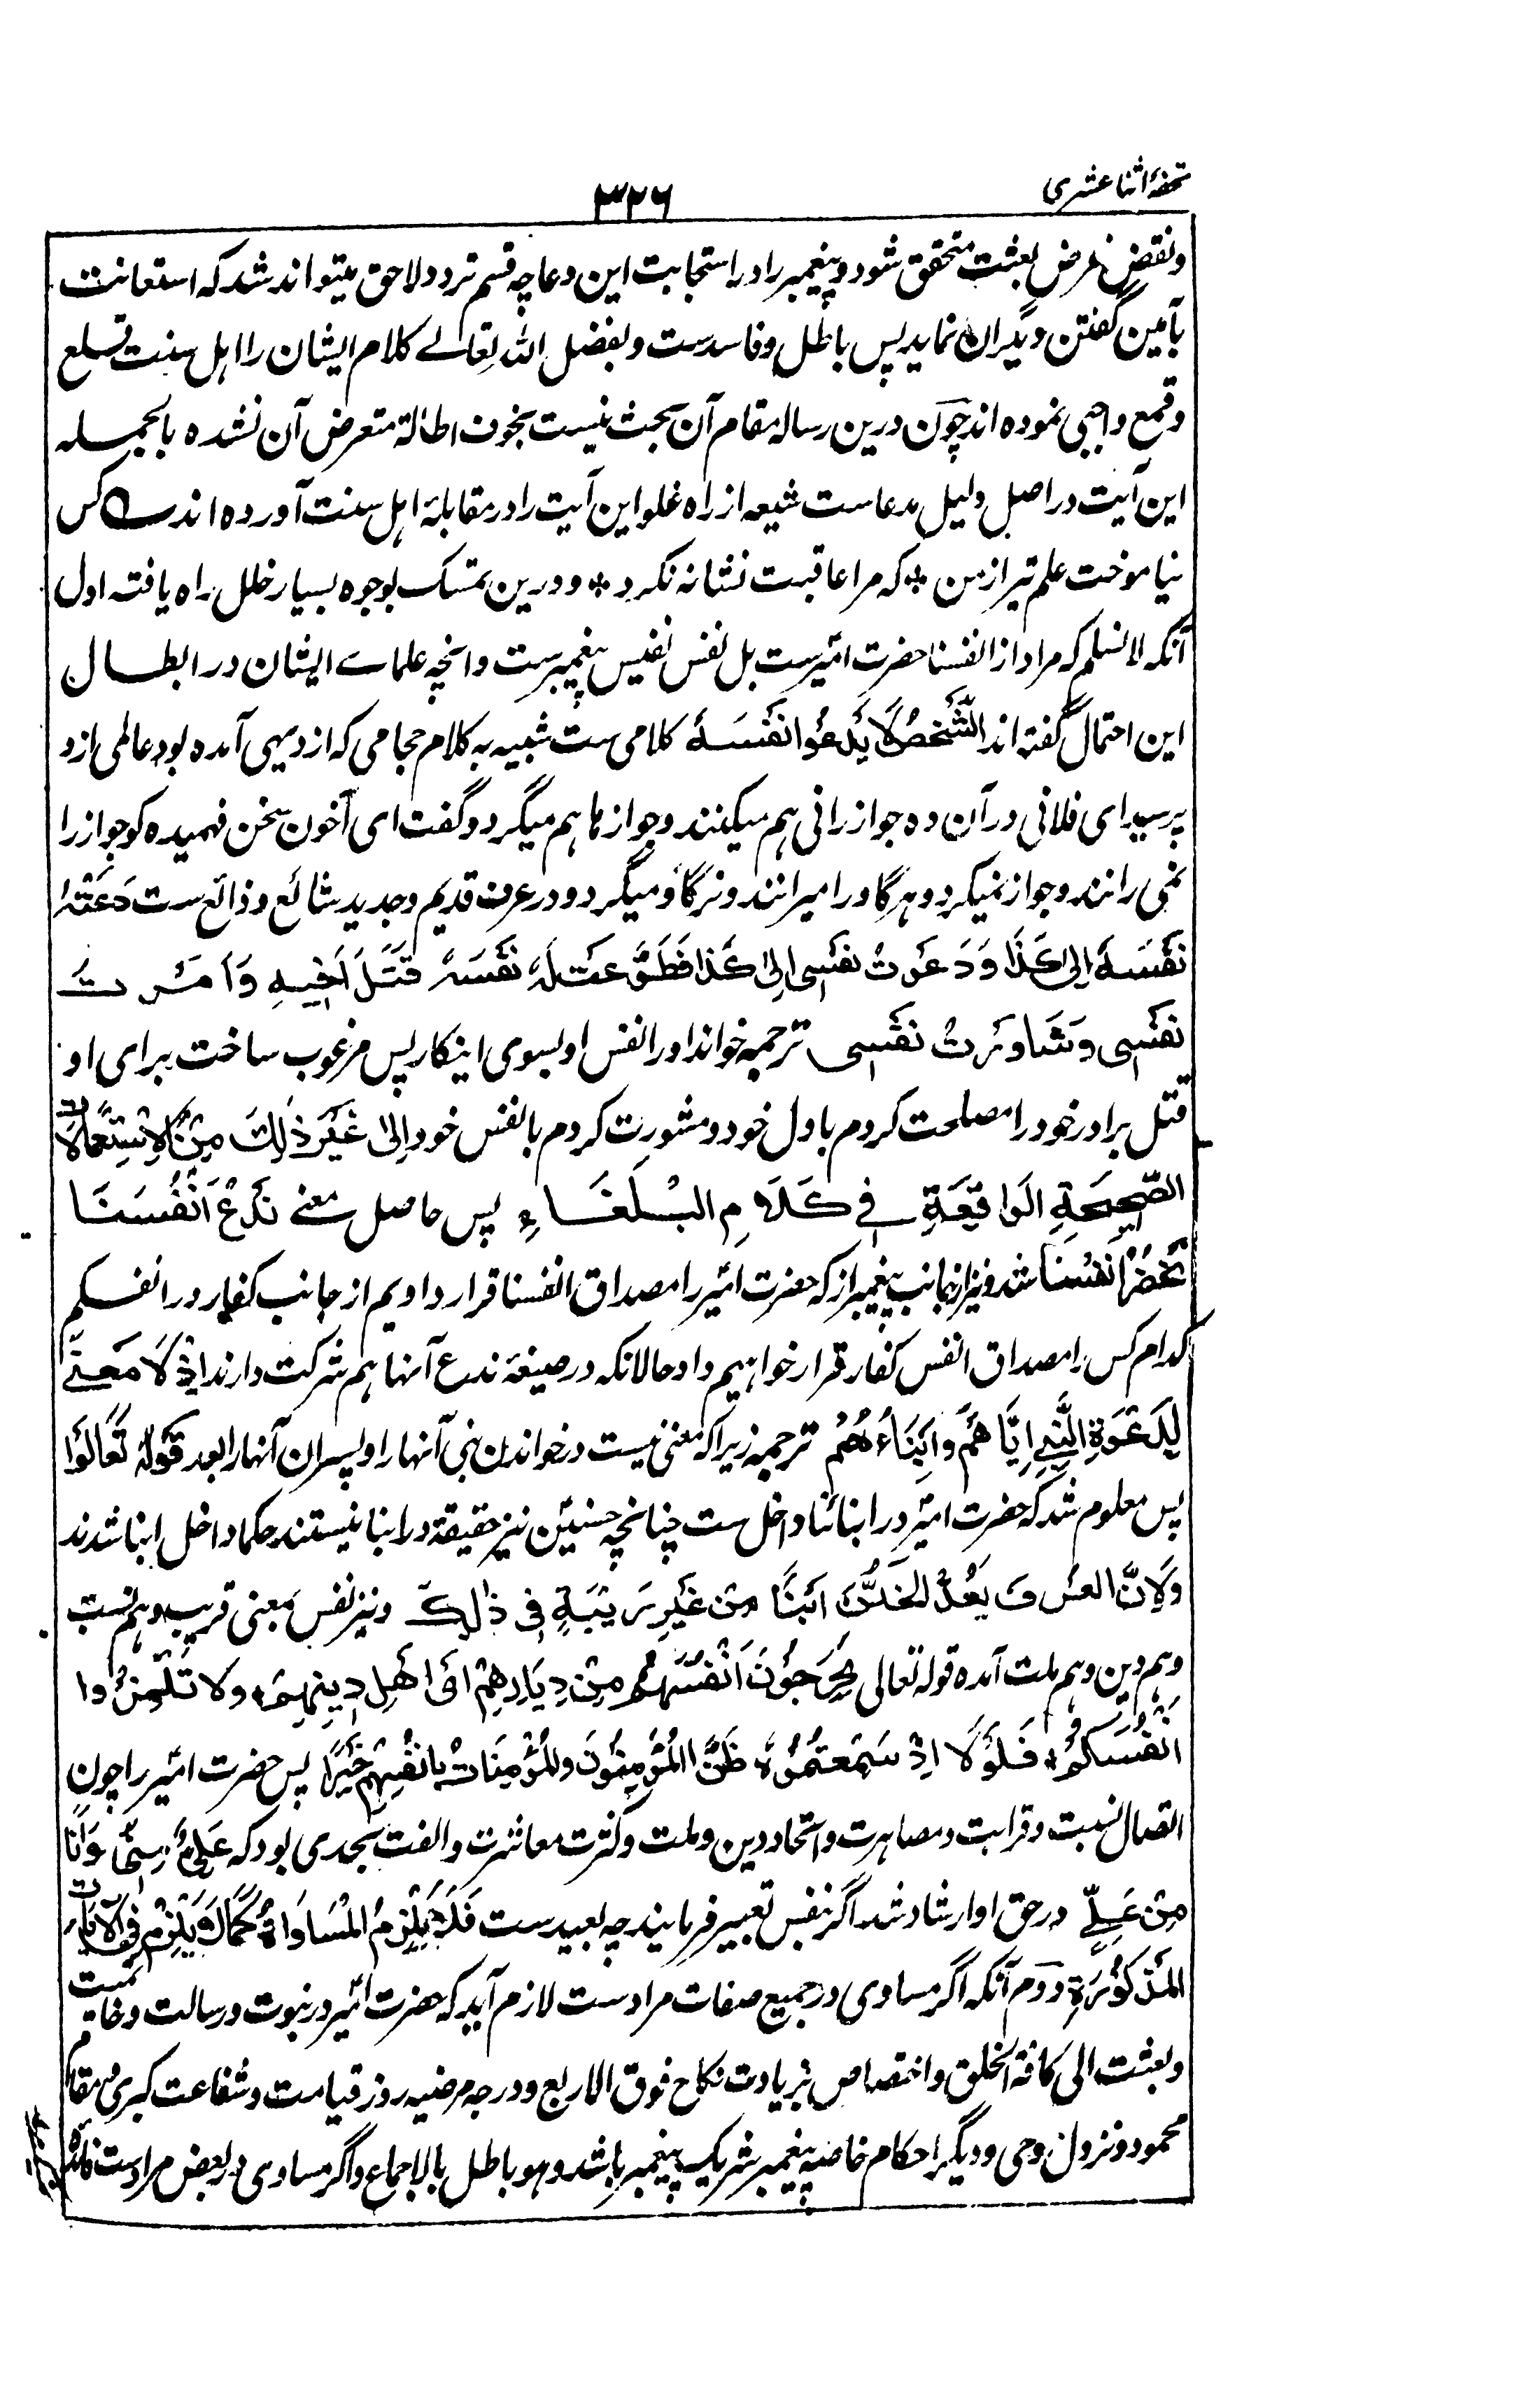 تحفۂ اثنا عشری
۳۲۶
ونقض غرض بعثت متحقق شود و پیغمبر را در استجابت این دعا چه قسم تردد لاحق میتواند شد که استعانت
بآمین گفتن دیگران نماید پس باطل و فاسدست و بفضل الله تعالے کلام ایشان را اهل سنت قلع
و قمع واجبی نموده اند چون درین رساله مقام آن بحث نیست بخوف اطالة متعرض آن نشده بالجمله
این آیت در اصل دلیل مدعاست شیعه از راه غلو این آیت را در مقابلۂ اهل سنت آورده اند کس
نیاموخت علم تیر از من * که مرا عاقبت نشانه نکرد * و درین تمسک بوجوه بسیار خلل راه یافته اول
آنکه لا نسلم که مراد از انفسنا حضرت امیرست بل نفس نفیس پیغمبرست و آنچه علماے ایشان در ابطال
این احتمال گفته اند الشَّخصُ لَا یَدعُو انَفسَهٗ کلامی ست شبیه به کلام حجامی که از دیهی آمده بود عالمی ازو
پرسید ای فلانی در آن ده جواز رانی هم میکنند و جوازها هم میگردد گفت ای آخون سخن فهمیده گو جواز را
نمی رانند و جواز نمیگردد هر گاو را میرانند و نر گاو میگردد و در عرف قدیم و جدید شائع و ذائع ست دَعَتهُ
نَفسَهٗ اِلیٰ کَذَا وَدَعَوتُ نفسی اِلیٰ کَذا فَطَوَّعَت لَهٗ نَفسَهٗ قَتلَ اَخِیهِ وَاَمَرتُ
نفسی وَشَاوَرتُ نَفسی ترجمه خواند او را نفس او بسوی اینکار پس مرغوب ساخت برای او
قتل برادر خود را مصلحت کردم با دل خود و مشورت کردم بانفس خود اِلیٰ غَیرِ ذٰلِکَ مِنَ الاِستِعمَالَاتِ
الصَّحِیحَةِ الوَاقِعَةِ فِی کَلَامِ البُلَغَاءِ پس حاصل معنے نَدعُ اَنفُسَنَا
نُحضِرُ اَنفُسَنا شد و نیز از جانب پیغمبر از که حضرت امیر را مصداق انفسنا قرار دادیم از جانب کفار در انفسکم
کدام کس را مصداق انفس کفار قرار خواهیم داد حالانکه در صیغۂ ندع آنها هم شرکت دارند اِذ لَا مَعنیٰ
لِدَعوَةِ النَّبِیِّ اِیَّاهُم وَاَبنَاءَهُم ترجمه زیرا که معنی نیست در خواندن نبی آنها را و پسران آنها را بعد قَولِهٖ تَعَالَوا
پس معلوم شد که حضرت امیر در ابنائنا داخل ست چنانچه حسنین نیز حقیقة در ابنا نیستند حکما داخل ابنا شدند
وَلِاَنَّ العُرفَ یَعُدُّ الخَتَنَ ابنًا مِن غَیرِ رَیبَةٍ فِی ذٰلِکَ و نیز نفس بمعنی قریب و هم نسبت
و هم دین و هم ملت آمده قوله تعالی یُخرِجُونَ اَنفُسَهُم مِن دِیَارِهِم ای اَهلِ دِینِهِم وَلا تَلمِزُوا
اَنفُسَکُم فَلَولَا اِذ سَمِعتُمُوهُ ظَنَّ المُؤمِنُونَ وَالمُؤمِنَاتُ بِاَنفُسِهِم خَیرًا پس حضرت امیر را چون
اتصال نسبت و قرابت و مصاهرت و اتحاد دین و ملت و کثرت معاشرت و الفت بحدی بود که عَلِیٌّ مِنِّی وَاَنَا
مِن عَلِیٍّ در حق او ارشاد شد اگر بنفس تعبیر فرمایند چه بعیدست فَلَا یَلزَمُ المُسَاوَاةُ کَمَا لَا یَلزَمُ فِی الآیَاتِ
المَذکُورَةِ دوم آنکه اگر مساوی در جمیع صفات مرادست لازم آید که حضرت امیر در نبوت و رسالت و خاتمیت
و بعثت الی کافة الخلق و اختصاص بزیادت نکاح فوق الاربع و درجه مرضیه روز قیامت و شفاعت کبری و مقام
محمود و نزول وحی و دیگر احکام خاصۂ پیغمبر شریک پیغمبر باشد وهو باطل بالاجماع و اگر مساوی در بعض مرادست فائده